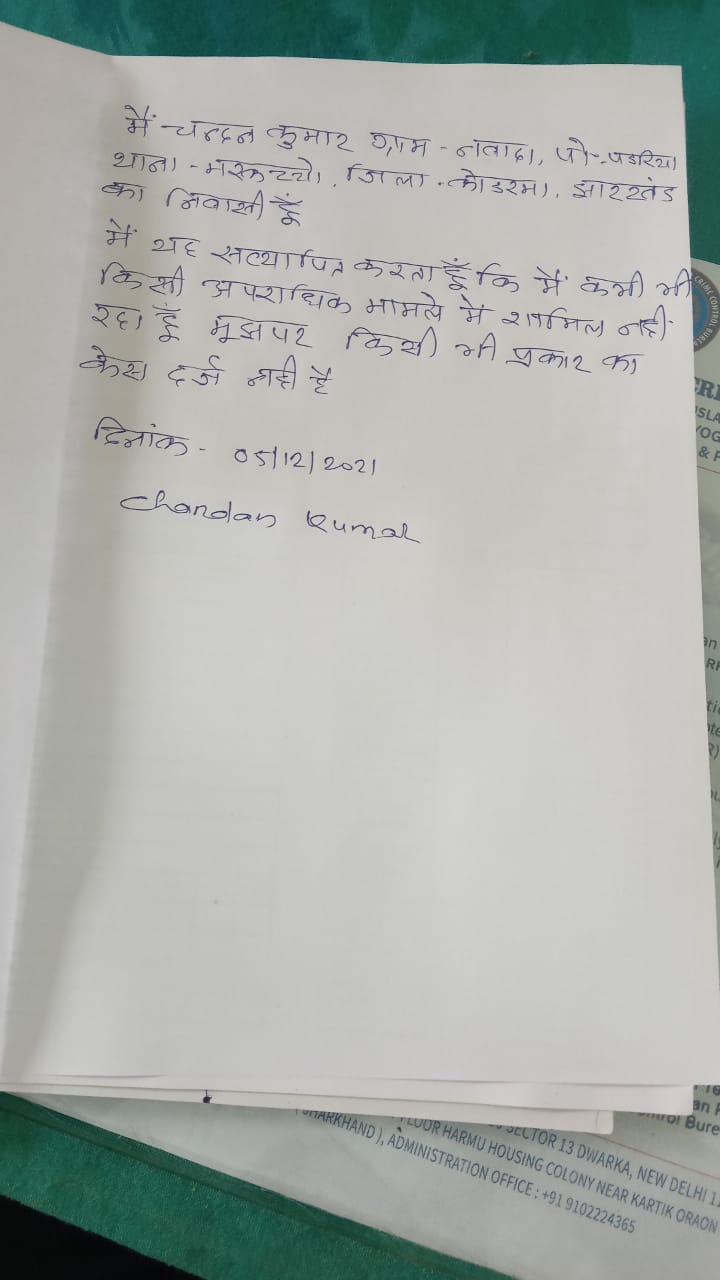 मैं चन्दन कुमार ग्राम - नवादा, पो-. पडरिया
थाना - मरकच्चो, जिला - कोडरमा, झारखंड
का निवासी हूँ
मैं यह सत्यापित करता हूँ कि मैं कभी भी
किसी अपराधिक मामले में शामिल नही
रहा हूँ मूझपर किसी भी प्रकार का
केस दर्ज नही है
दिनांक - 05/12/2021
Chandan Kumar
CRIME CONTROL BUREAU
& 
SECTOR 13 DWARKA, NEW DELHI
FLOOR HARMU HOUSING COLONY NEAR KARTIK ORAON
JHARKHAND ), ADMINISTRATION OFFICE : +91 9102224365